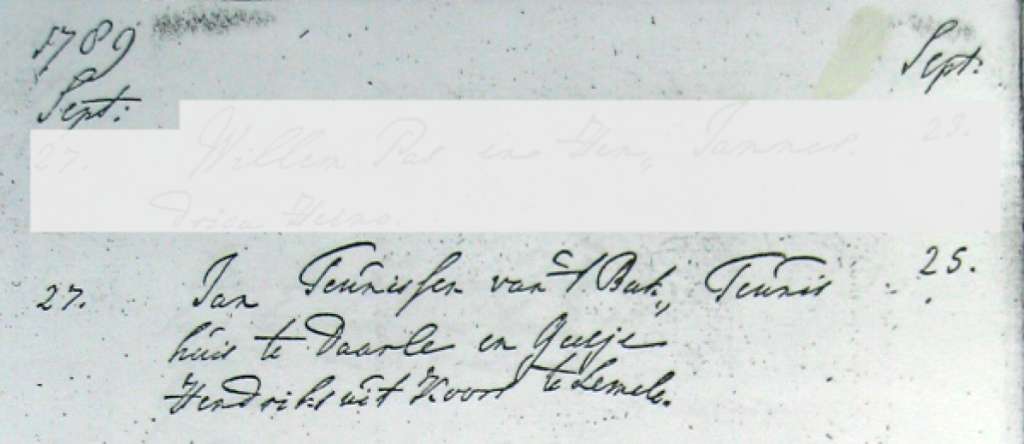 1789 Sept:
Sept:
27. Willem Pas en Hen„ Jannes. 23.
drica
27. Jan Teunissen van 't Bak„ Teunis 25.
huis te Daarle en Geesje
Hendriks uit te Lemele.